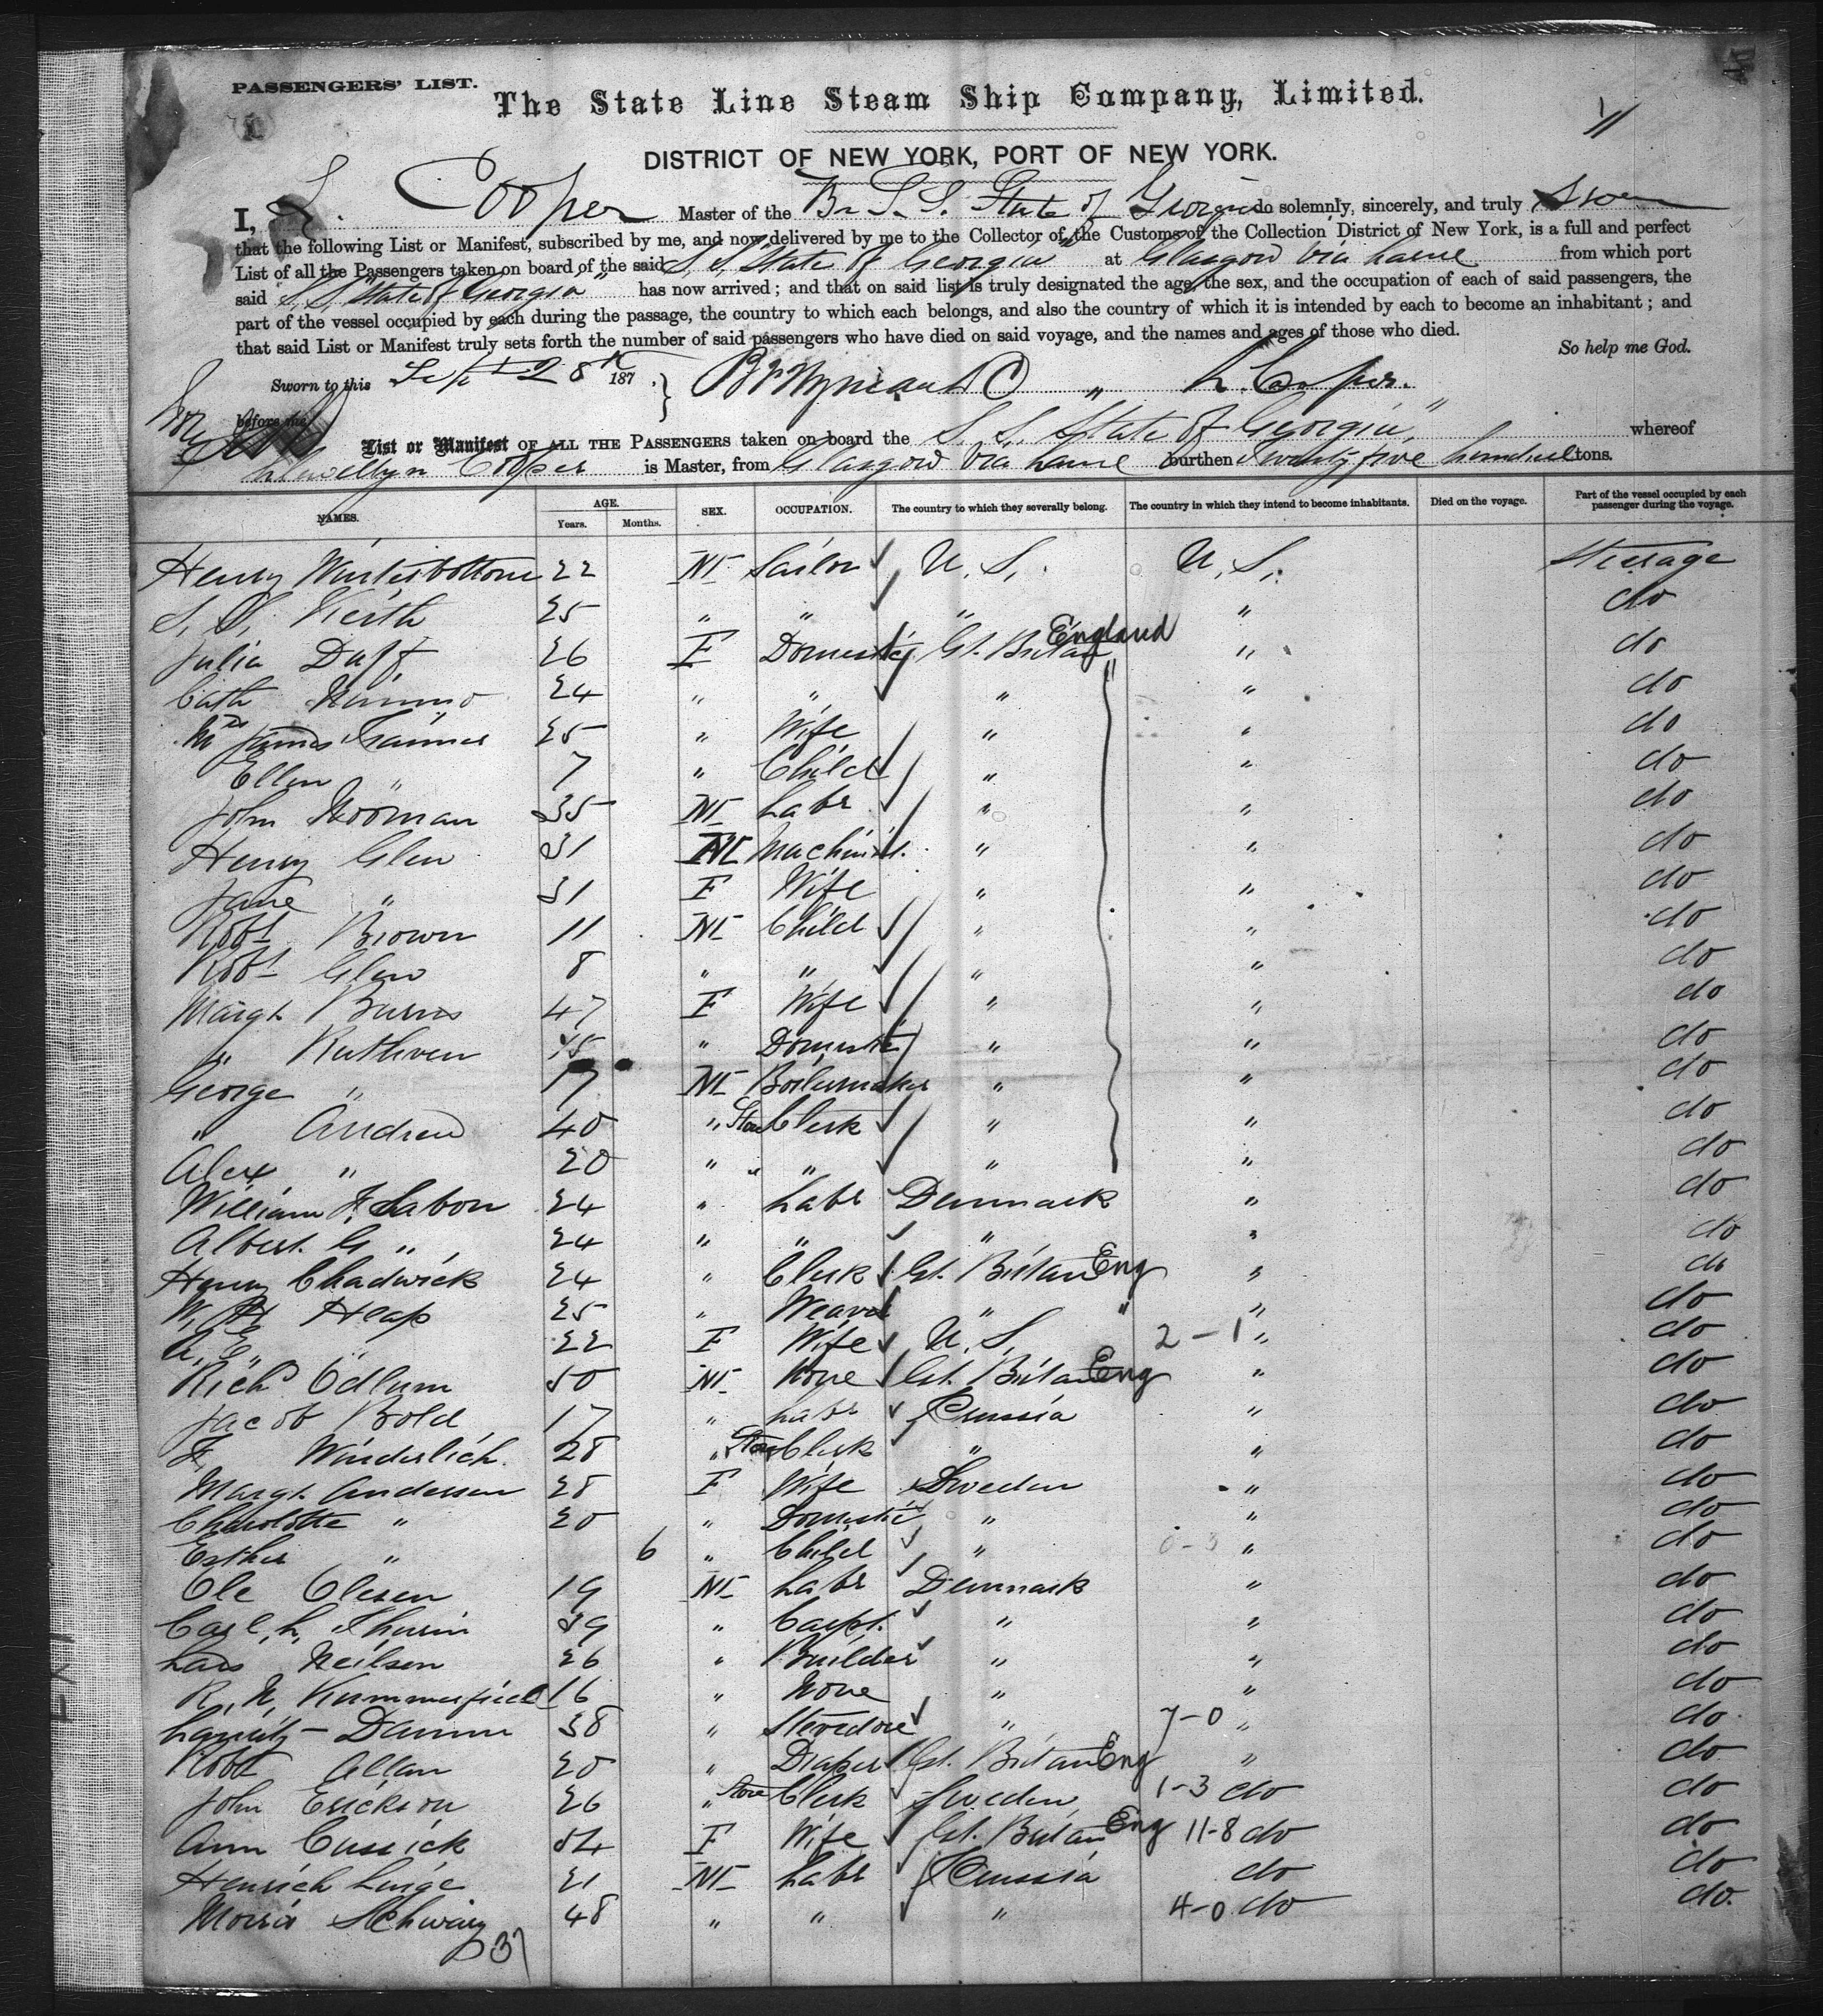 PASSENGERS' LIST.
The State Line Steam Ship Company, Limited.
11
DISTRICT OF NEW YORK, PORT OF NEW YORK.
I, L. Cooper Master of the Br S. S. State of Georgia do solemnly, sincerely, and truly Swear
that the following List or Manifest, subscribed by me, and now delivered by me to the Collector of the Customs of the Collection District of New York, is a full and perfect
List of all the Passengers taken on board of the said S. S. "State of Georgia" at Glasgow via Larne from which port
said S. S. "State of Georgia" has now arrived ; and that on said list is truly designated the age, the sex, and the occupation of each of said passengers, the
part of the vessel occupied by each during the passage, the country to which each belongs, and also the country of which it is intended by each to become an inhabitant ; and
that said List or Manifest truly sets forth the number of said passengers who have died on said voyage, and the names and ages of those who died.
So help me God.
Sworn to this Sept 28th 187 . } L. Cooper.
before me
List or Manifest OF ALL THE PASSENGERS taken on board the S. S. "State of Georgia," whereof
Llewellyn Cooper is Master, from Glasgow via Larne burthen Twenty five hundred tons.
NAMES. AGE. Years. Months. SEX. OCCUPATION. The country to which they severally belong. The country in which they intend to become inhabitants. Died on the voyage. Part of the vessel occupied by each passenger during the voyage.
Henry Winterbottom 22 M Sailor U. S. U. S. Steerage
S. S. Keith 25 " " " " do
Julia Duff 26 F Domestic Gt. Britain England " do
Cath Nimmo 24 " " " " do
Mrs James Gaines 25 " Wife " " do
Ellen " 7 " Child " " do
John Norman 35 M Labr " " do
Henry Glen 31 M Machinist " " do
Jane " 31 F Wife " " do
Robt Brown 11 M Child " " do
Robt Glen 8 " " " " do
Margt Burns 47 F Wife " " do
" Ruthven 45 " Domestic " " do
George " 17 M Boilermaker " " do
" Andrew 40 " Store Clerk " " do
Alex " 20 " " " " " do
William F. Labon 24 " Labr Denmark " do
Albert G " 24 " " " " do
Henry Chadwick 24 " Clerk Gt. Britain Eng " do
W. H Heap 25 " Weaver " " " do
A. E. " 22 F Wife U. S. 2 - 1 " do
Richd Odlum 50 M None Gt. Britain Eng " do
Jacob Bold 17 " Labr Prussia " do
F. Winderlich 28 " Store Clerk " " do
Margt Anderson 28 F Wife Sweden " do
Charolotte " 20 " Domestic " " do
Esther " 6 " Child " 0-3 " do
Ole Olesen 19 M Labr Denmark " do
Carl L. Thurin 39 " Carpt. " " do
Lars Neilsen 26 " Builder " " do
R. N. Kummerfield 16 " None " " do
Lauritz Damm 38 " Stevedore " 7-0 " do
Robt Allan 20 " Draper Gt. Britain Eng " do
John Erickson 26 " Store Clerk Sweden 1-3 do do
Ann Cussick 54 F Wife Gt. Britain Eng 11-8 do do
Henrich Luige 21 M Labr Prussia do do
Morris Schwarz 48 " " " 4-0 do do.
37